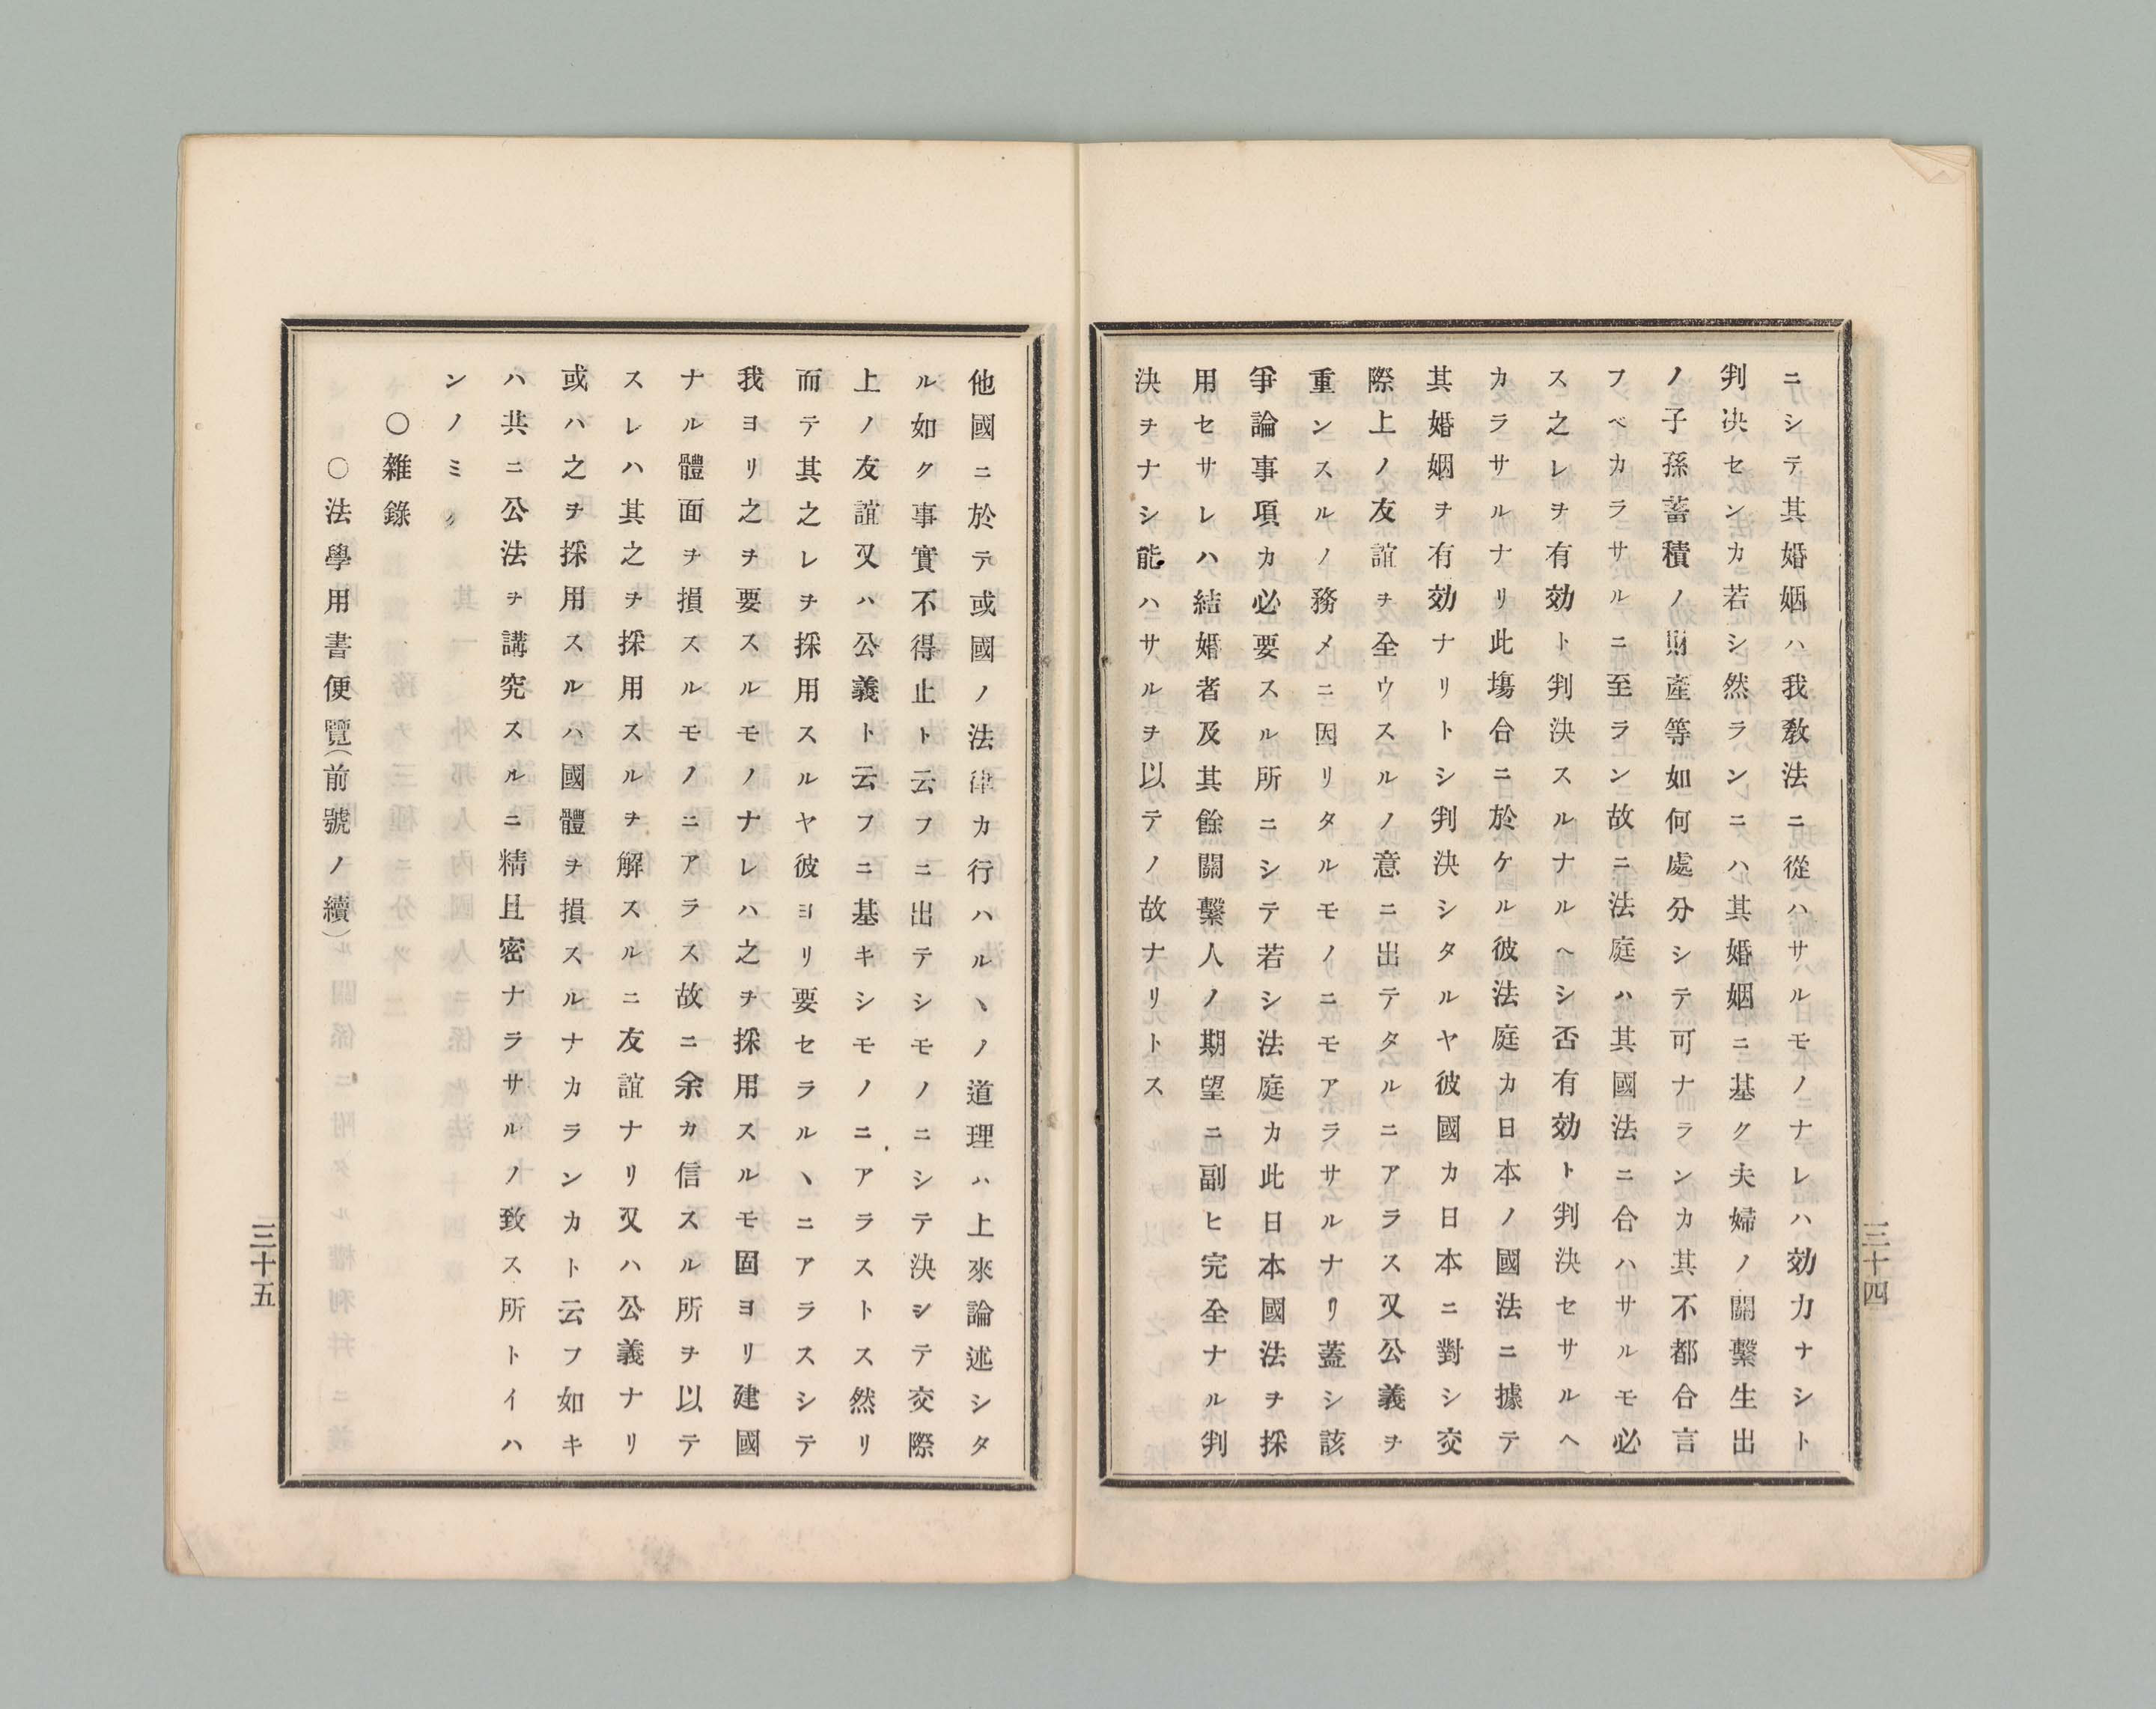 ニシテ其婚姻ハ我敎法ニ從ハサルモノナレハ効力ナシト
判决センカ若シ然ランニハ其婚姻ニ基ク夫婦ノ關繫生出
ノ子孫蓄積ノ財產等如何處分シテ可ナランカ其不都合言
フベカラサルニ至ラン故ニ法庭ハ其國法ニ合ハサルモ必
ス之レヲ有効ト判决スルナルヘシ否有効ト判决セサルヘ
カラサルナリ此塲合ニ於ケル彼法庭カ日本ノ國法ニ據テ
其婚姻ヲ有効ナリトシ判决シタルヤ彼國カ日本ニ對シ交
際上ノ友誼ヲ全ウスルノ意ニ出テタルニアラス又公義ヲ
重ンスルノ務メニ因リタルモノニモアラサルナリ蓋シ該
爭論事項カ必要スル所ニシテ若シ法庭カ此日本國法ヲ採
用セサレハ結婚者及其餘關繫人ノ期望ニ副ヒ完全ナル判
決ヲナシ能ハサルヲ以テノ故ナリトス
三十四
他國ニ於テ或國ノ法律カ行ハルヽノ道理ハ上來論述シタ
ル如ク事實不得止ト云フニ出テシモノニシテ決シテ交際
上ノ友誼又ハ公義ト云フニ基キシモノニアラストス然リ
而テ其之レヲ採用スルヤ彼ヨリ要セラルヽニアラスシテ
我ヨリ之ヲ要スルモノナレハ之ヲ採用スルモ固ヨリ建國
ナル體面ヲ損スルモノニアラス故ニ余カ信スル所ヲ以テ
スレハ其之ヲ採用スルヲ解スルニ友誼ナリ又ハ公義ナリ
或ハ之ヲ採用スルハ國體ヲ損スルナカランカト云フ如キ
ハ共ニ公法ヲ講究スルニ精且密ナラサルノ致ス所トイハ
ンノミ
○雜錄
○法學用書便覽(前號ノ續)
三十五